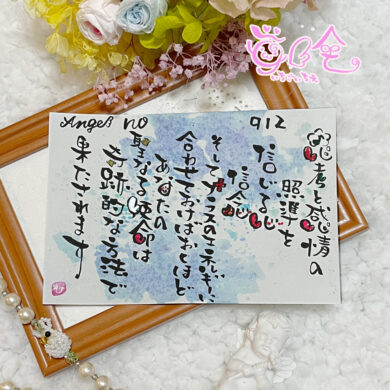 Angel no 912
思考と感情の
照準を
信じる心
信念
そしてプラスのエネルギーに
合わせておけばおくほど
あなたの
聖なる使命は
奇跡的な方法で
果たされます